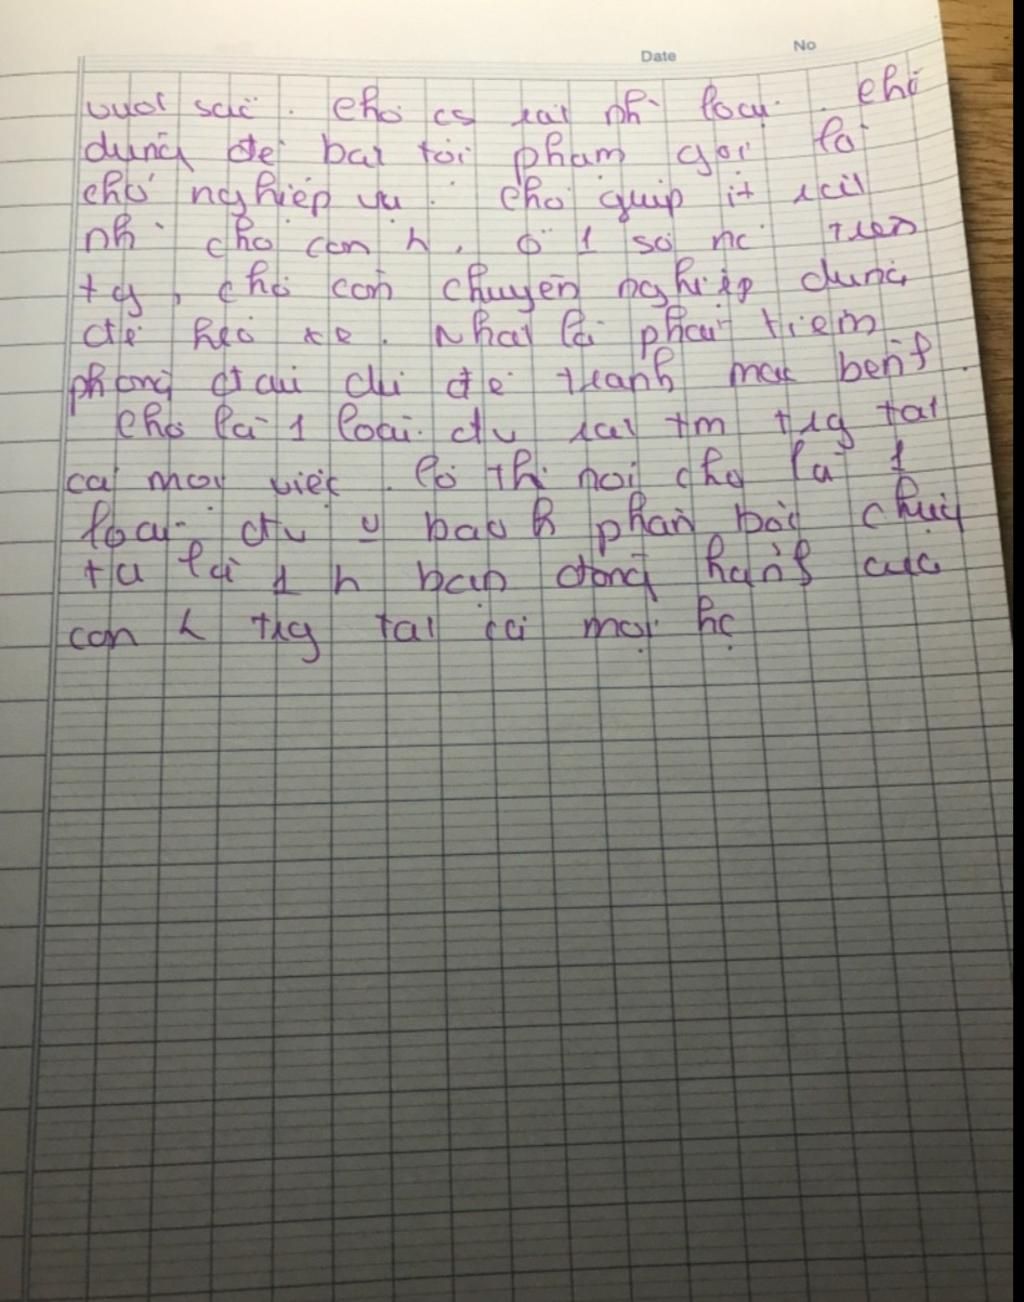 Date No
vượt sắc. Chó có rất nh` loại. chó
dùng để bắt tội phạm gọi là
chó nghiệp vụ. Chó giúp ít rất
nh` cho con n. ở 1 số nc trên
tg, chó còn chuyên nghiệp dùng
để kéo xe. Nhất là phải tiêm
phòng đầy đủ để tránh mắc bệnh.
Chó là 1 loài đv rất tm trg tất
cả mọi việc. Có thể nói chó là 1
loài đv k bao h phản bội chúng
ta là 1 n bạn đồng hành của
con n trg tất cả mọi hc